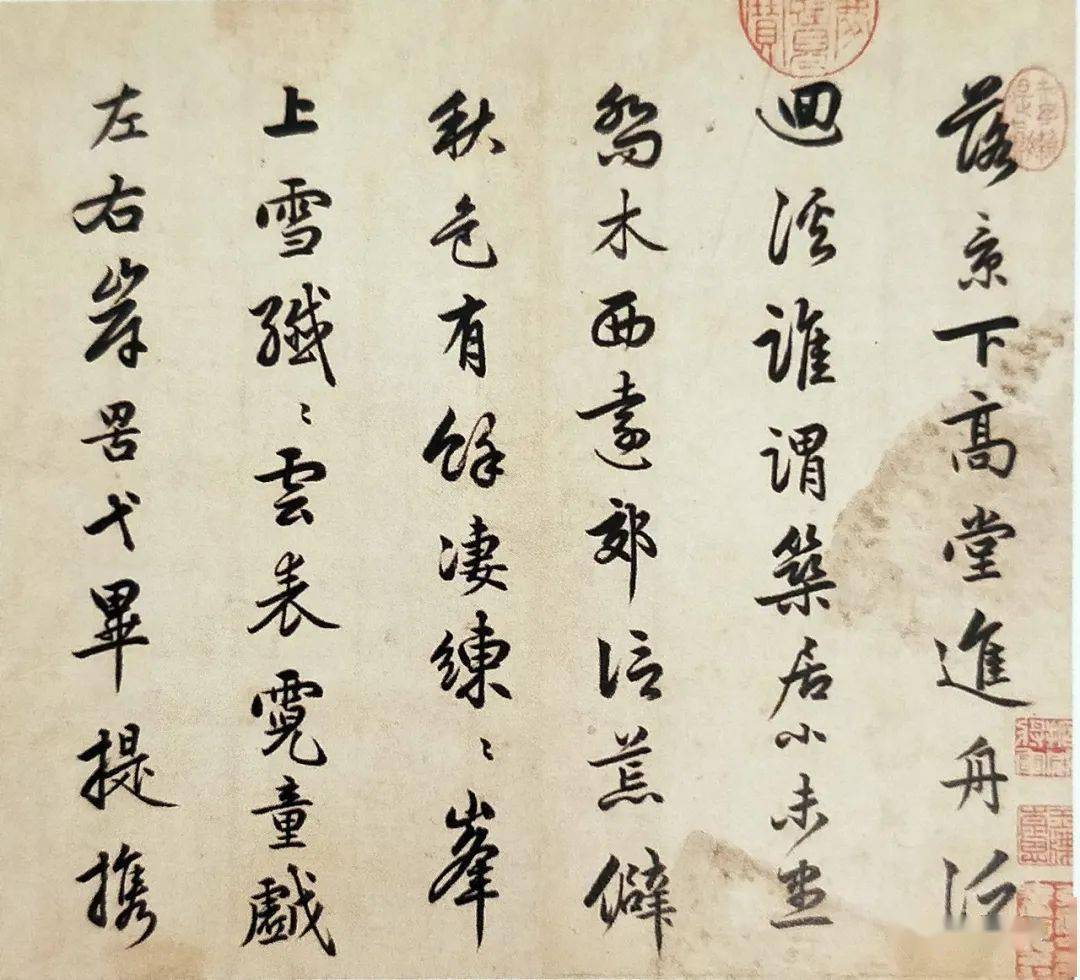 落景下高堂進舟泛
迴溪誰謂築居小未盡
喬木西遠郊信荒僻
秋色有餘凄練〻峯
上雪纖〻雲表霓童戲
左右岸罟弋畢提攜